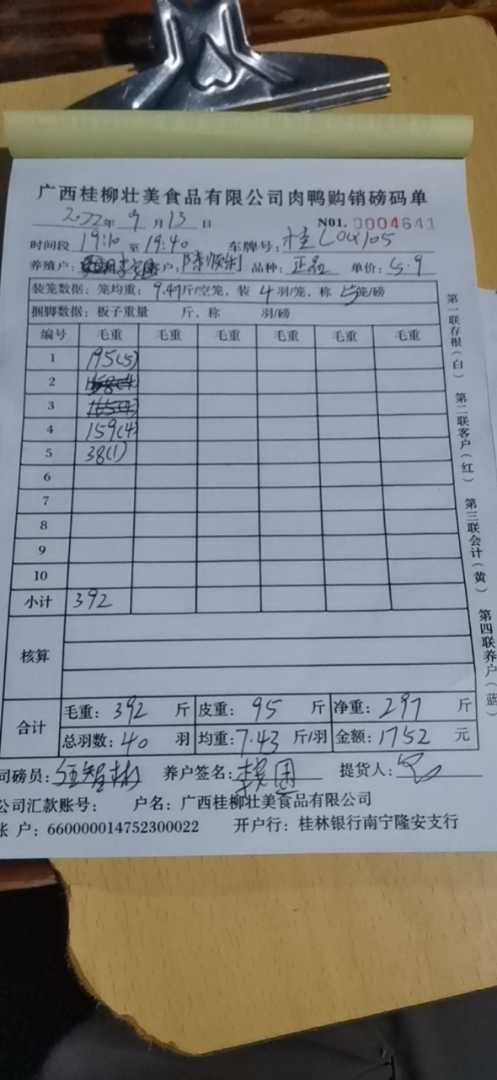 广西桂柳壮美食品有限公司肉鸭购销磅码单
2022年9月13日 N01. 0004641
时间段 19:10 至 19:40 车牌号:桂L04105
养殖户: 户: 品种:正品 单价:5.9
装笼数据:笼均重:9.47斤/空笼,装 4 羽/笼,称 5笼/磅
捆脚数据:板子重量 斤,称 羽/磅
编号 毛重 毛重 毛重 毛重 毛重 毛重
1 195(5)
2
3
4 159(4)
5 38(1)
6
7
8
9
10
小计 392
核算
合计 毛重:392 斤 皮重:95 斤 净重:297 斤
总羽数:40 羽 均重:7.43 斤/羽 金额:1752 元
司磅员: 养户签名: 提货人:
公司汇款账号: 户名:广西桂柳壮美食品有限公司
账 户:660000014752300022 开户行:桂林银行南宁隆安支行
第一联存根(白)
第二联客户(红)
第三联会计(黄)
第四联养户(蓝)